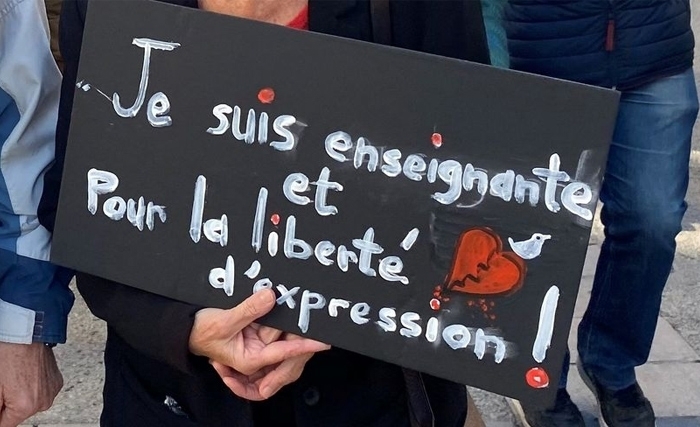 Je suis enseignante
et
Pour la liberté
d'expression !